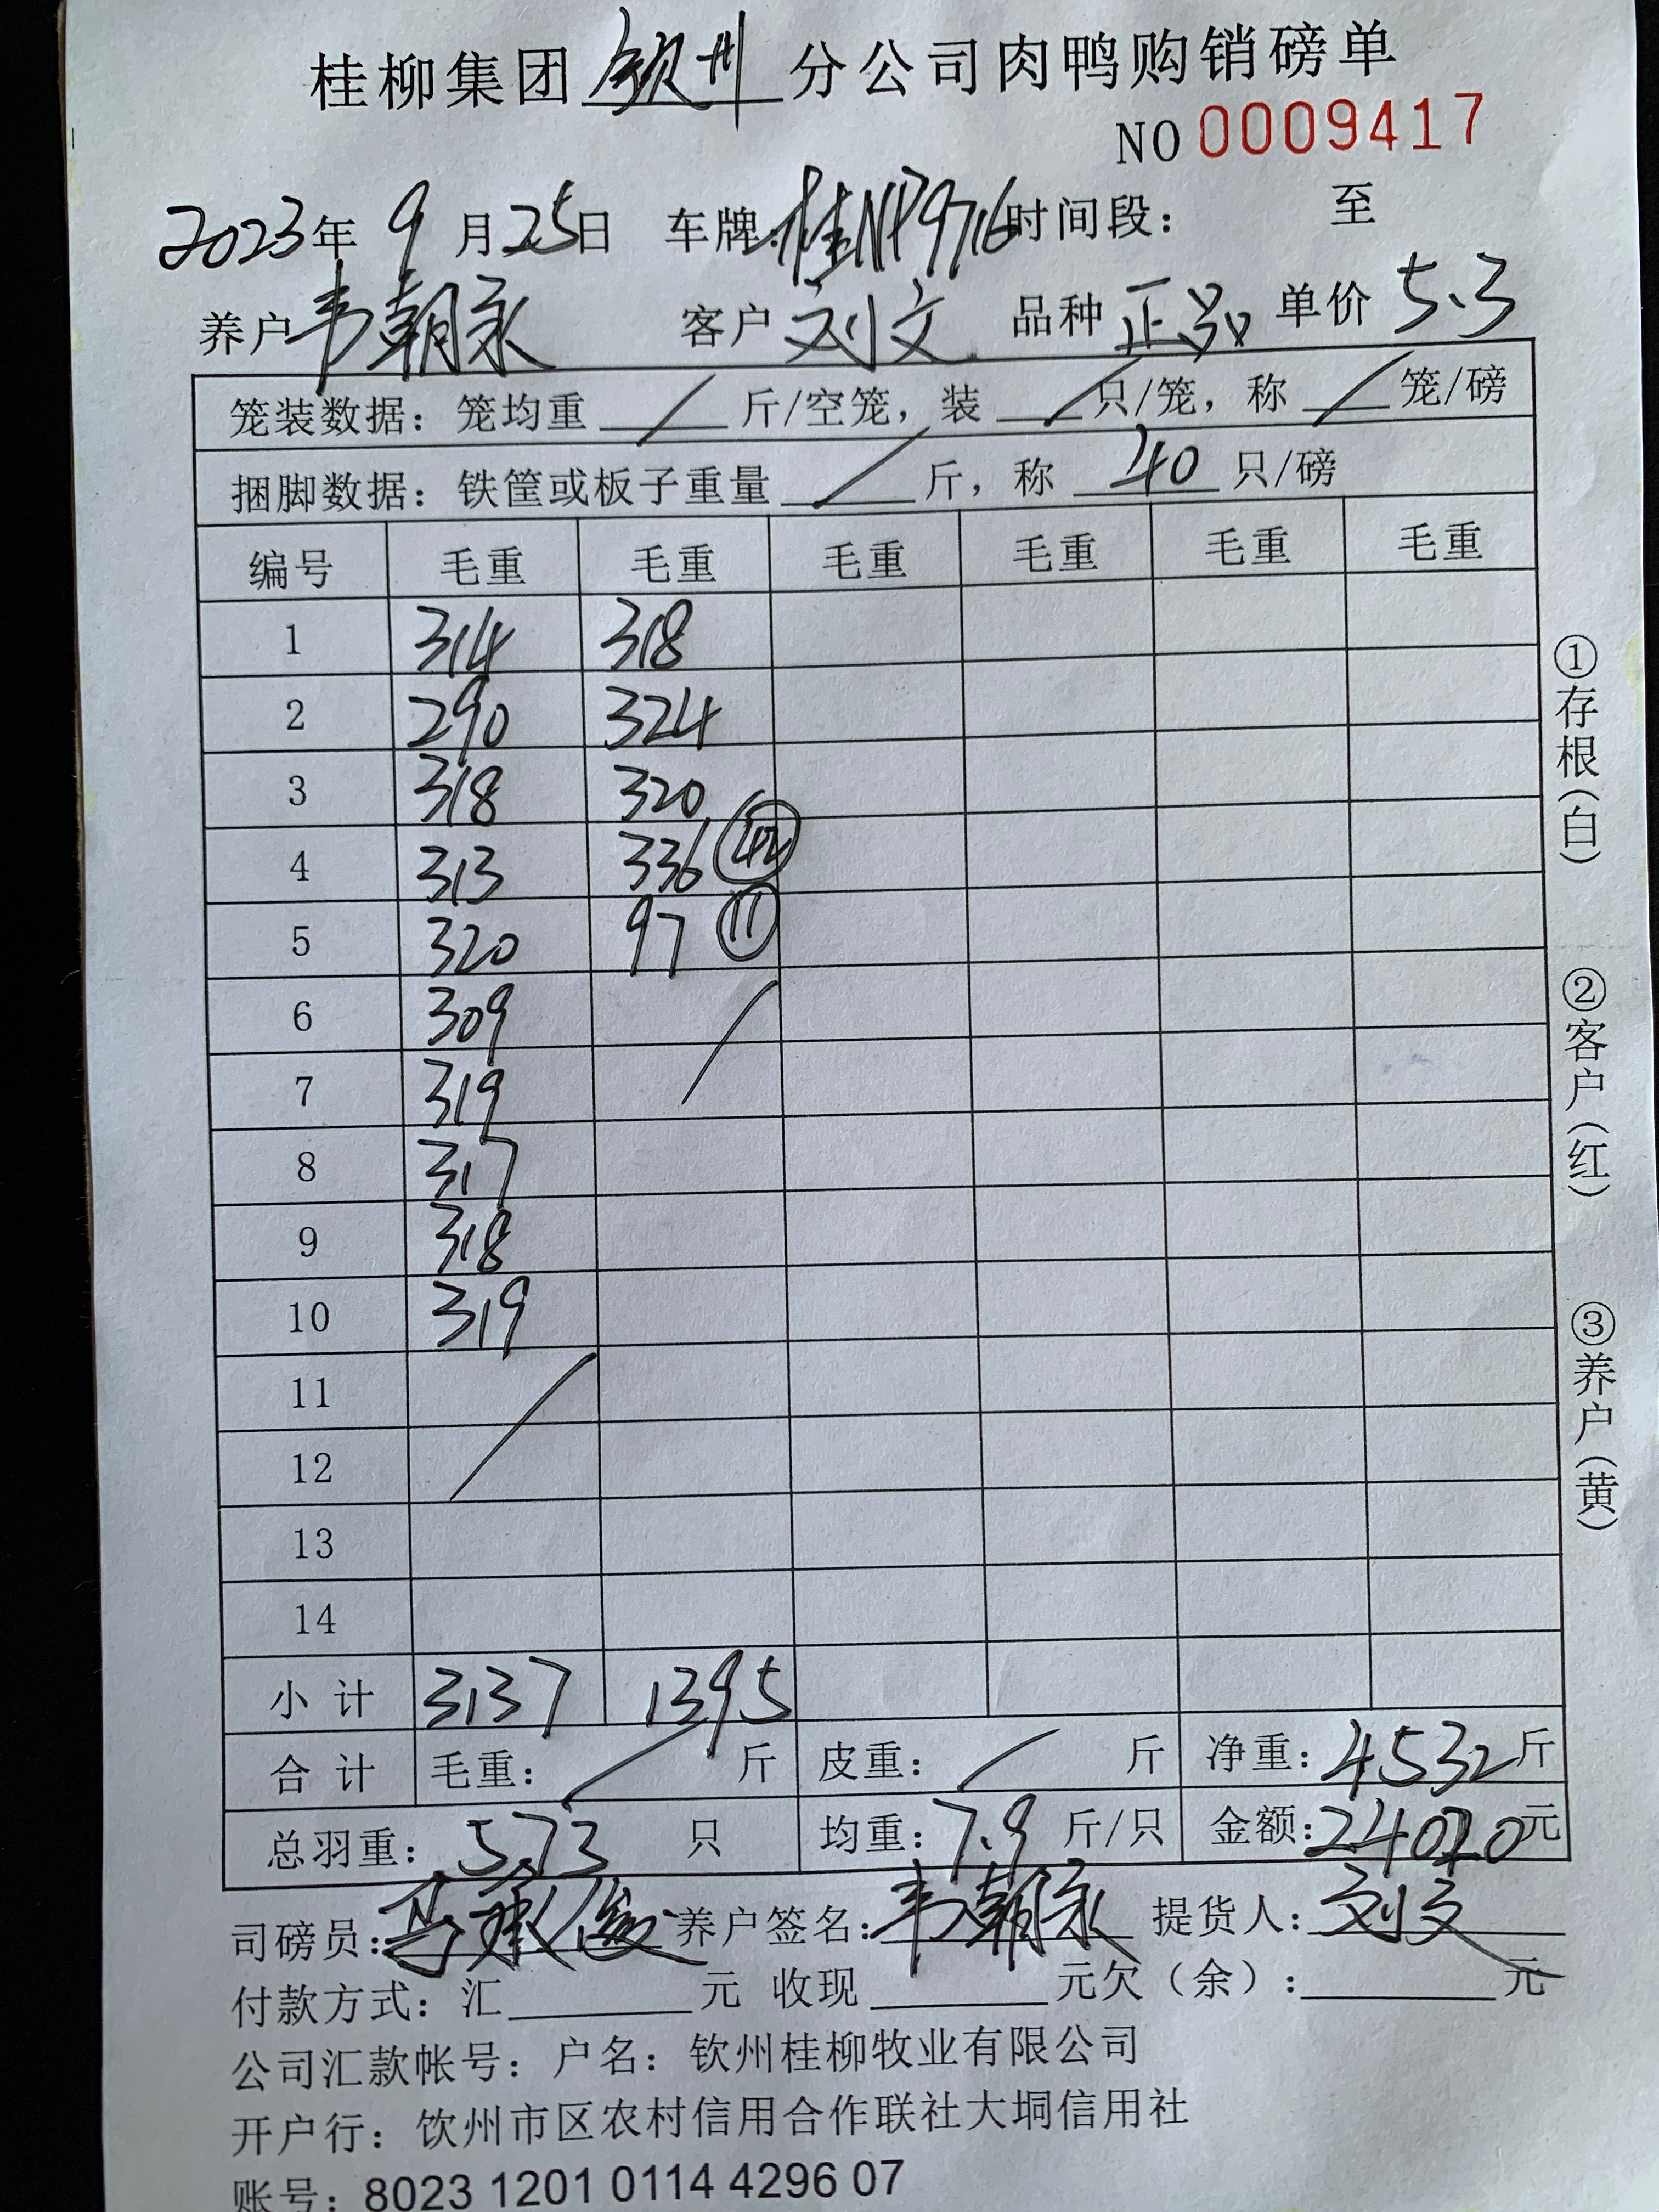 桂柳集团 钦州 分公司肉鸭购销磅单
NO 0009417
2023年 9 月 25日 车牌: 桂NP9716 时间段: 至
养户 韦朝永 客户 刘文 品种 正品 单价 5.3
笼装数据: 笼均重 / 斤/空笼, 装 / 只/笼, 称 / 笼/磅
捆脚数据: 铁筐或板子重量 / 斤, 称 40 只/磅
编号 毛重 毛重 毛重 毛重 毛重 毛重
1 314 318
2 290 324
3 318 320
4 313 336 (42)
5 320 97 (11)
6 309 /
7 319
8 317
9 318
10 319
11 /
12
13
14
小计 3137 1395
合计 毛重: / 斤 皮重: / 斤 净重: 4532 斤
总羽重: 573 只 均重: 7.9 斤/只 金额: 24020 元
司磅员: 马承俊 养户签名: 韦朝永 提货人: 刘文
付款方式: 汇 元 收现 元欠（余）: 元
公司汇款帐号: 户名: 钦州桂柳牧业有限公司
开户行: 钦州市区农村信用合作联社大垌信用社
账号: 8023 1201 0114 4296 07
①存根（白）
②客户（红）
③养户（黄）